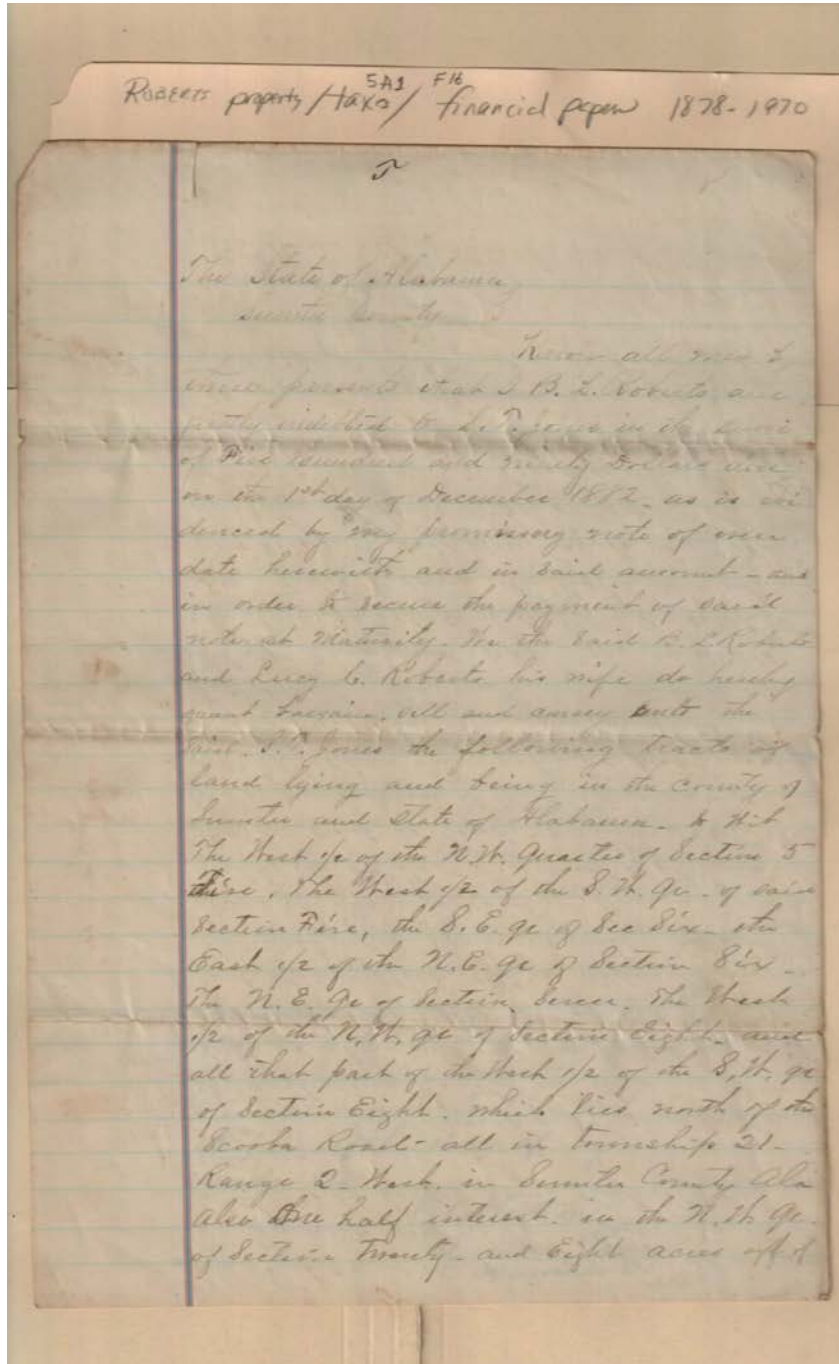 ROBERTS property / taxes / financial papers 1878-1970
5A1 F16
The State of Alabama
Sumter County
Know all men by
these presents that I B. L. Roberts am
justly indebted to S. T. Jones in the sum
of Five Hundred and ninety Dollars due
on the 1st day of December 1882 - as is evi
denced by my promissory note of even
date herewith and in said amount - and
in order to secure the payment of said
note at Maturity. We the said B. L. Roberts
and Lucy C. Roberts his wife do hereby
grant bargain, sell and convey unto the
said S. T. Jones the following tracts of
land lying and being in the County of
Sumter and State of Alabama - to Wit
The West 1/2 of the N.W. Quarter of Section 5
Five, The West 1/2 of the S.W. qr - of said
Section Five, the S.E. qr of Sec Six - the
East 1/2 of the N.E. qr of Section Six -
The N.E. Qr of Section Seven. The West
1/2 of the N.W. qr of Section Eight - and
all that part of the West 1/2 of the S.W. qr
of Section Eight. which lies north of the
Scooba Road - all in Township 21 -
Range 2 - West. in Sumter County Ala
Also One half interest. in the N.W. Qr.
of Section Twenty - and Eight acres off of